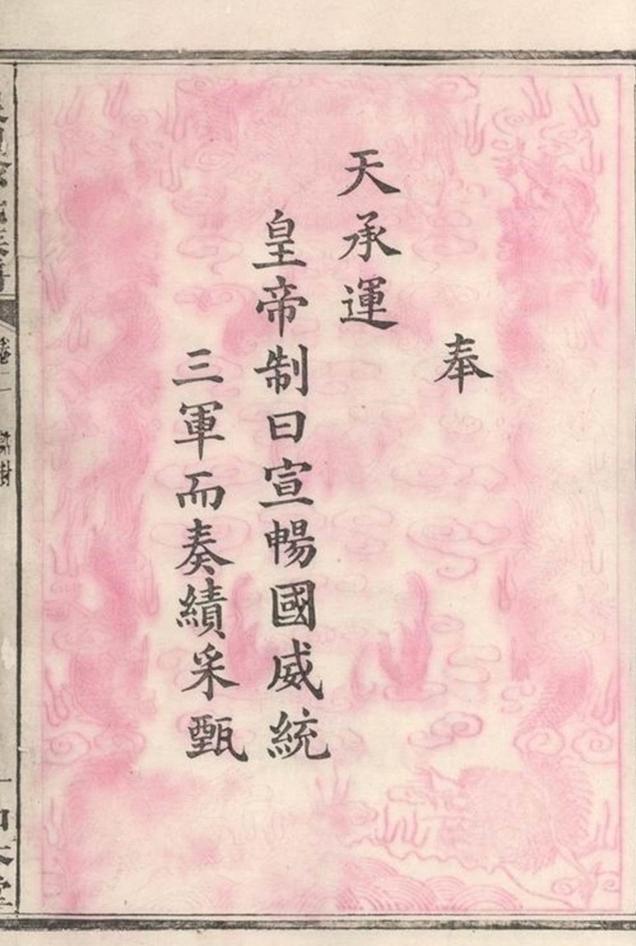 奉
天承運
皇帝制曰宣暢國威統
三軍而奏績采甄